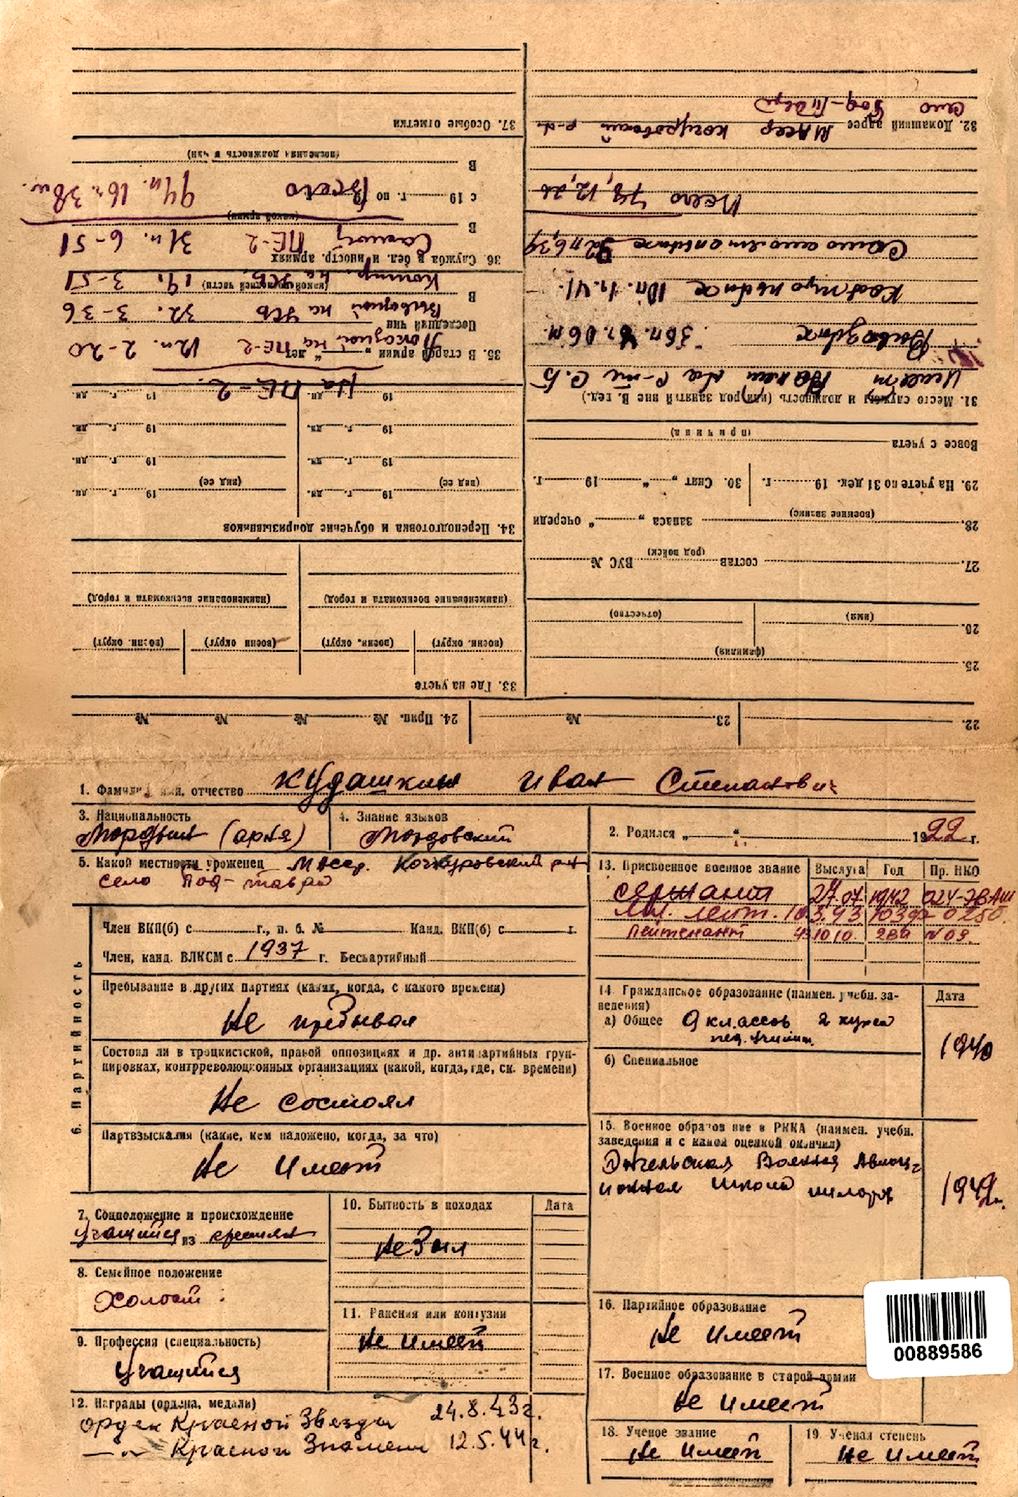 1. Фамилия, имя, отчество Кудашкин Иван Степанович
3. Национальность
Мордвин (эрзя)
4. Знание языков
Мордовский
2. Родился „ “ 1922 г.
5. Какой местности уроженец МАССР. Кочкуровский р-н
село Под-Тавла
6. Партийность
Член ВКП(б) с г., п. б. № Канд. ВКП(б) с г.
Член, канд. ВЛКСМ с 1937 г. Беспартийный
Пребывание в других партиях (каких, когда, с какого времени)
Не пребывал
Состоял ли в троцкистской, правой оппозициях и др. антипартийных груп-
пировках, контрреволюционных организациях (какой, когда, где, ск. времени)
Не состоял
Партвзыскания (какие, кем наложено, когда, за что)
Не имеет
7. Соцположение и происхождение
учащийся из крестьян
8. Семейное положение
Холост
9. Профессия (специальность)
Учащийся
10. Бытность в походах Дата
Не был
11. Ранения или контузии
Не имеет
12. Награды (ордена, медали)
орден Красной Звезды 24.8.43 г.
—„— Красной Знамени 12.5.44 г.
13. Присвоенное военное звание Выслуга Год Пр. НКО
сержант 27.07 1942 024
Мл. лейт. 0250
лейтенант 10 10 № 09
14 Гражданское образование (наимен. учебн. за- Дата
ведения)
а) Общее 9 классов 2 курса
пед. училищ. 1940
б) Специальное
15. Военное образование в РККА (наимен. учебн.
заведения и с какой оценкой окончил)
Энгельсская Военная Авиац-
ионная школа пилотов 1942 г.
16. Партийное образование
Не имеет
17. Военное образование в старой армии
Не имеет
18. Ученое звание
Не имеет
19. Ученая степень
Не имеет
00889586
22. 23. № 24. Прип. № № № №
25.
(фамилия)
26.
(имя) (отчество)
27. состав (род войск) ВУС №
28. (военное звание) запаса „ “ очереди
29. На учете по 31 дек. 19 г. 30. Снят „ “ 19 г.
Вовсе с учета
(причина)
31. Место службы и должность (или род занятий вне В. вед.)
Имеет налет на с-те СБ
Вывозных 36 п.
Контрольных 10 п. 1 ч. 41
Самостоятельных
Всего
32. Домашний адрес МАССР Кочкуровский р-н
село Под-Тавла
33. Где на учете
(военн. округ) (военн. округ) (военн. округ) (военн. округ)
(наименование военкомата и город) (наименование военкомата и город)
34. Переподготовка и обучение допризывников
(вид ее) (вид ее)
19 г. дн. 19 г. дн.
19 г. дн. 19 г. дн.
19 г. дн. 19 г. дн.
19 г. дн. 19 г. дн.
На ПЕ-2.
35. В старой армии „ “ лет
на ПЕ-2 12 п. 2-20
Последний чин
Вывозной на УСБ 32. 3-36
В (какой последней части)
Контр. на УСБ 14 3-51
36. Служба в бел. и иностр. армиях
Самост. ПЕ-2 31 п. 6-51
В (какой армии)
с 19 г. по 19
Всего 94 п. 16 ч. 38 м.
В (последняя должность и чин)
37. Особые отметки